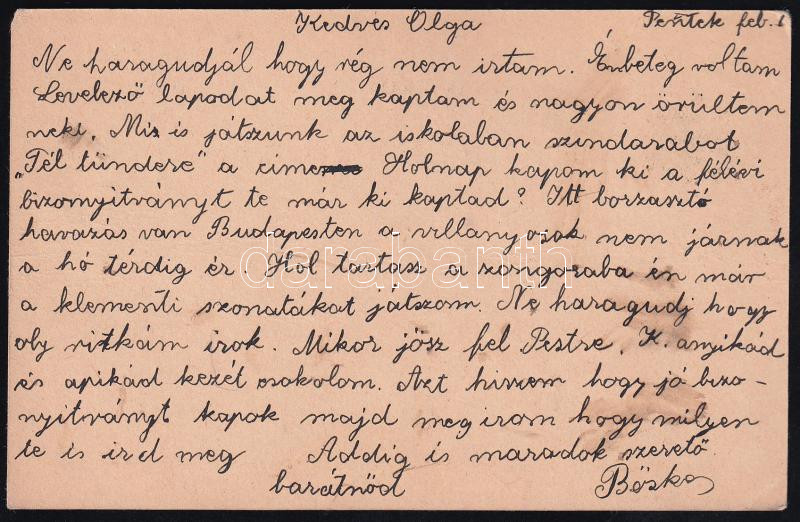 Kedves Olga Péntek feb. 1
Ne haragudjál hogy rég nem irtam. Én beteg voltam
Levelező lapodat meg kaptam és nagyon örültem
neki. Mis is játszunk az iskolában szindarabot
„Tél tündere" a cime Holnap kapom ki a félévi
bizonyitványt te már ki kaptad? Itt borzasztó
havazás van Budapesten a villanyosok nem járnak
a hó térdig ér. Hol tartasz a zongoraba én már
a klementi szonatákat játszom. Ne haragudj hogy
oly ritkám irok. Mikor jösz fel Pestre. K. anyikád
és apikád kezét csokolom. Azt hiszem hogy jó bizo-
nyitványt kapok majd meg irom hogy milyen
te is ird meg Addig is maradok szerető
barátnöd Böske
darabanth